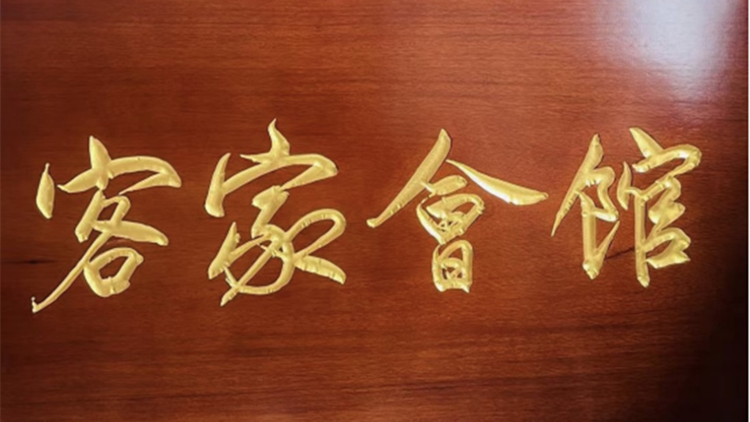 客家會館